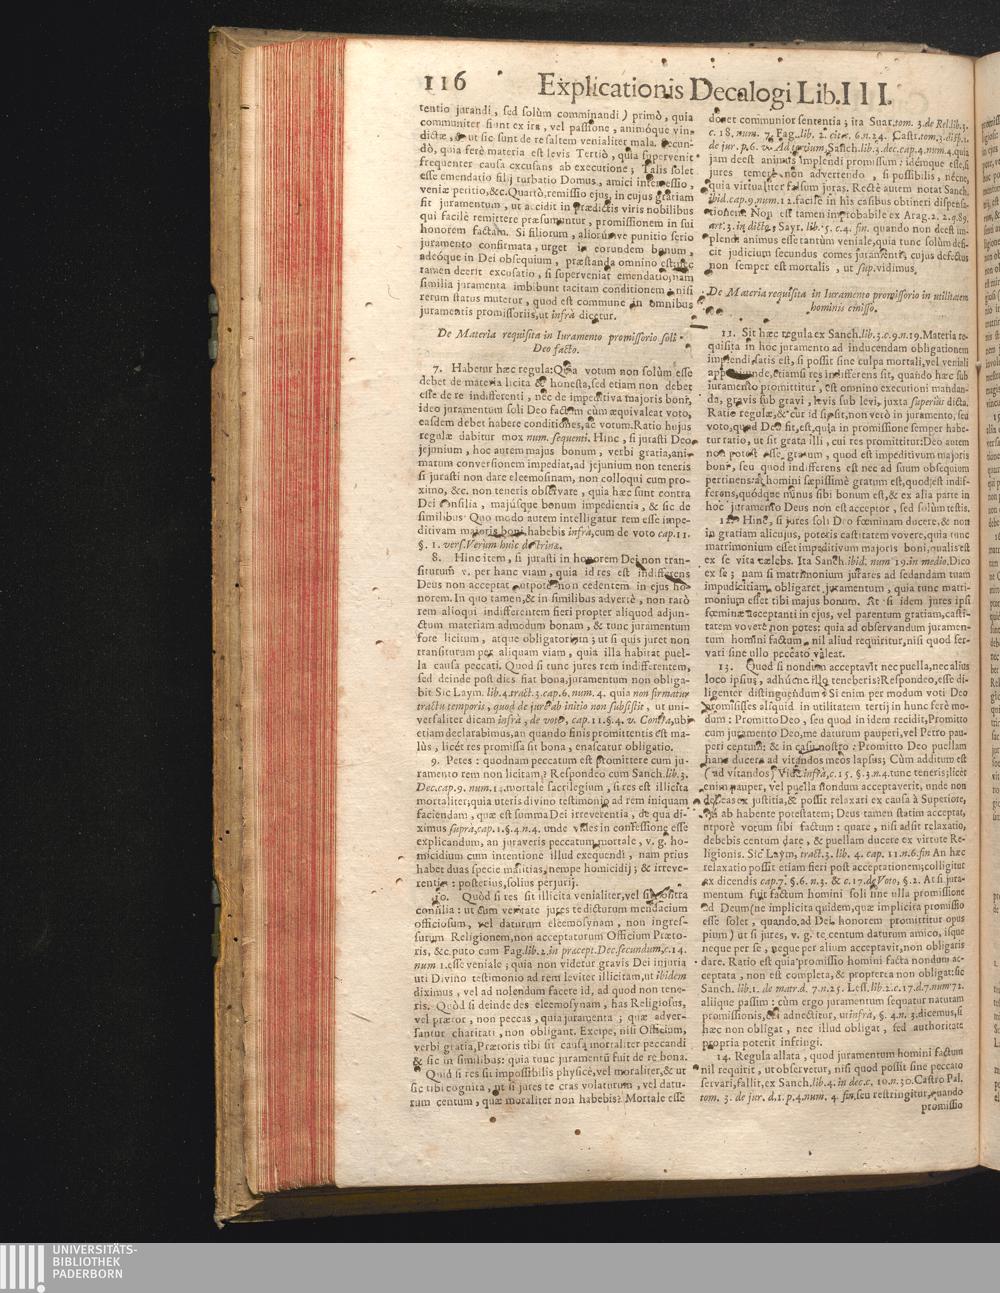 116
Explicationis Decalogi Lib. III.
tentio jurandi, sed solùm comminandi) primò, quia
communiter fiunt ex ira, vel passione, animóque vin-
dictæ, & ut sic sunt de re saltem venialiter mala. Secun-
dò, quia ferè materia est levis Tertiò, quia supervenit
frequenter causa excusans ab executione; Talis solet
esse emendatio filij turbatio Domus, amici intercessio,
veniæ petitio, &c. Quartò, remissio ejus, in cujus gratiam
fit juramentum, ut accidit in prædictis viris nobilibus
qui facilè remittere præsumuntur, promissionem in sui
honorem factam. Si filiorum, aliorumve punitio serio
juramento confirmata, urget in eorundem bonum,
adeóque in Dei obsequium, præstanda omnino est:
tamen deerit excusatio, si superveniat emendatio, nam
similia juramenta imbibunt tacitam conditionem, nisi
rerum status mutetur, quod est commune in omnibus
juramentis promissoriis, ut infrà dicetur.
De Materia requisita in Iuramento promissorio soli
Deo facto.
7. Habetur hæc regula: Quia votum non solùm esse
debet de materia licita & honesta, sed etiam non debet
esse de re indifferenti, nec de impeditiva majoris boni,
ideo juramentum soli Deo factum cùm æquivaleat voto,
easdem debet habere conditiones, ac votum. Ratio hujus
regulæ dabitur mox num. sequenti. Hinc, si jurasti Deo
jejunium, hoc autem majus bonum, verbi gratia, ani-
marum conversionem impediat, ad jejunium non teneris
si jurasti non dare eleemosinam, non colloqui cum pro-
ximo, &c. non teneris observare, quia hæc sunt contra
Dei consilia, majúsque bonum impedientia, & sic de
similibus Quo modo autem intelligatur rem esse impe-
ditivam majoris boni, habebis infrà, cum de voto cap. 11.
§. 1. vers. Verùm huic doctrinæ.
8. Hinc item, si jurasti in honorem Dei non tran-
siturum v. per hanc viam, quia id res est indifferens
Deus non acceptat utpote non cedentem in ejus ho-
norem. In quo tamen, & in similibus advertè, non rarò
rem alioqui indifferentem fieri propter aliquod adjun-
ctum materiam admodum bonam, & tunc juramentum
fore licitum, atque obligatorium; ut si quis juret non
transiturum per aliquam viam, quia illa habitat puel-
la causa peccati. Quod si tunc jures rem indifferentem,
sed deinde post dies fiat bona, juramentum non obliga-
bit Sic Laym. lib. 4. tract. 3. cap. 6. num. 4. quia non firmatur
tractu temporis, quod de jure ab initio non subsistit, ut uni-
versaliter dicam infrà, de voto, cap. 11. §. 4. v. Contra, ubi
etiam declarabimus, an quando finis promittentis est ma-
lùs, licét res promissa sit bona, enascatur obligatio.
9. Petes: quodnam peccatum est promittere cum ju-
ramento rem non licitam? Respondeo cum Sanch. lib. 3.
Dec. cap. 9. num. 14. mortale sacrilegium, si res est illicita
mortaliter; quia uteris divino testimonio ad rem iniquam
faciendam, quæ est summa Dei irreverentia, de qua di-
ximus suprà, cap. 1. §. 4. n. 4. unde vides in confessione esse
explicandum, an juraveris peccatum mortale, v. g. ho-
micidium cum intentione illud exequendi, nam prius
habet duas specie malitias, nempe homicidij; & irreve-
rentiæ: posterius, solius perjurij.
10. Quòd si res sit illicita venialiter, vel sit contra
consilia: ut cum veritate jures te dicturum mendacium
officiosum, vel daturum eleemosynam, non ingres-
surum Religionem, non acceptaturum Officium Præto-
ris, &c. puto cum Fag. lib. 2. in præcept. Dec. secundum, c. 14.
num 1. esse veniale; quia non videtur gravis Dei injuria
uti Divino testimonio ad rem leviter illicitam, ut ibidem
diximus, vel ad nolendum facere id, ad quod non tene-
ris. Quòd si deinde des eleemosynam, has Religiosus,
vel prætor, non peccas, quia juramenta; quæ adver-
santur charitati, non obligant. Excipe, nisi Officium,
verbi gratia, Prætoris tibi sit causa mortaliter peccandi
& sic in similibus: quia tunc juramentū fuit de re bona.
Quid si res sit impossibilis physicè, vel moraliter, & ut
sic tibi cognita, ut si jures te cras volaturum, vel datu-
rum centum, quæ moraliter non habebis? Mortale esse
docet communior sententia; ita Suar. tom. 3. de Rel. lib. 3.
c. 18. num. 7. Fag. lib. 2. cit. c. 6. n. 24. Castr. tom. 3. disp. 1.
de jur. p. 6. v. Ad tertium, Sanch. lib. 3. dec. cap. 4. num. 4. quia
jam deest animus implendi promissum: idémque esse, si
jures temerè non advertendo, si possibilis, nécne,
quia virtualiter falsum juras. Rectè autem notat Sanch.
ibid. cap. 9. num. 12. facilè in his casibus obtineri dispensa-
tionem. Non est tamen improbabile ex Arag. 2. 2. q. 89.
art. 3. in dicto, Sayr. lib. 5. c. 4. fin. quando non deest im-
plendi animus esse tantùm veniale, quia tunc solùm defi-
cit judicium secundus comes juramenti, cujus defectus
non semper est mortalis, ut sup. vidimus.
De Materia requisita in Iuramento promissorio in utilitatem
hominis emisso.
11. Sit hæc regula ex Sanch. lib. 3. c. 9. n. 19. Materia re-
quisita in hoc juramento ad inducendam obligationem
impendi, satis est, si possit sine culpa mortali, vel veniali
etiamsi res indifferens sit, quando hæc sub
juramento promittitur, est omnino executioni mandan-
da, gravis sub gravi, levis sub levi, juxta superius dicta.
Ratio regulæ, & cur id sit, non verò in juramento, seu
voto, quod Deo fit, est, quia in promissione semper habe-
tur ratio, ut sit grata illi, cui res promittitur: Deo autem
non potest esse gratum, quod est impeditivum majoris
boni, seu quod indifferens est nec ad suum obsequium
pertinens: at homini sæpissimè gratum est, quod est indif-
ferens, quódque minus sibi bonum est, & ex alia parte in
hoc juramento Deus non est acceptor, sed solùm testis.
12. Hinc, si jures soli Deo fœminam ducere, & non
in gratiam alicujus, poteris castitatem vovere, quia tunc
matrimonium esset impeditivum majoris boni, qualis est
ex se vita cælebs. Ita Sanch. ibid. num 19. in medio. Dico
ex se; nam si matrimonium jurares ad sedandam tuam
impudicitiam, obligaret juramentum, quia tunc matri-
monium esset tibi majus bonum. At si idem jures ipsi
fœminæ acceptanti in ejus, vel parentum gratiam, casti-
tatem vovere non potes: quia ad observandum juramen-
tum homini factum, nil aliud requiritur, nisi quod ser-
vari sine ullo peccato valeat.
13. Quod si nondum acceptavit nec puella, nec alius
loco ipsius, adhucne illo teneberis? Respondeo, esse di-
ligenter distinguendum: Si enim per modum voti Deo
promisisses aliquid in utilitatem tertij in hunc ferè mo-
dum: Promitto Deo, seu quod in idem recidit, Promitto
cum juramento Deo, me daturum pauperi, vel Petro pau-
peri centum: & in casu nostro: Promitto Deo puellam
hanc ducere ad vitandos meos lapsus; Cùm additum est
(ad vitandos) Vide infrà, c. 15. §. 3. n. 4. tunc teneris; licèt
enim pauper, vel puella nondum acceptaverit, unde non
debeas ex justitia, & possit relaxari ex causa à Superiore,
ab habente potestatem; Deus tamen statim acceptat,
utporè votum sibi factum: quare, nisi adsit relaxatio,
debebis centum dare, & puellam ducere ex virtute Re-
ligionis. Sic Laym, tract. 3. lib. 4. cap. 11. n. 6. fin An hæc
relaxatio possit etiam fieri post acceptationem; colligitur
ex dicendis cap. 7. §. 6. n. 3. & c. 17. de Voto, §. 2. At si jura-
mentum fuit factum homini soli sine ulla promissione
ad Deum (ne implicita quidem, quæ implicita promissio
esse solet, quando ad Dei honorem promittitur opus
pium) ut si jures, v. g. te centum daturum amico, isque
neque per se, neque per alium acceptavit, non obligaris
dare. Ratio est quia promissio homini facta nondum ac-
ceptata, non est completa, & propterea non obligat: sic
Sanch. lib. 1. de matr. d. 7. n. 25. Less. lib. 2. c. 17. d. 7. num 72.
aliique passim: cùm ergo juramentum sequatur naturam
promissionis, cui adnectitur, ut infrà, §. 4. n. 3. dicemus, si
hæc non obligat, nec illud obligat, sed authoritate
propria poterit infringi.
14. Regula allata, quod juramentum homini factum
nil requirit, ut observetur, nisi quod possit sine peccato
servari, fallit, ex Sanch. lib. 4. in dec. c. 10. n. 30. Castro Pal.
tom. 3. de jur. d. 1. p. 4. num. 4 fin. seu restringitur, quando
promissio
UNIVERSITÄTS-
BIBLIOTHEK
PADERBORN